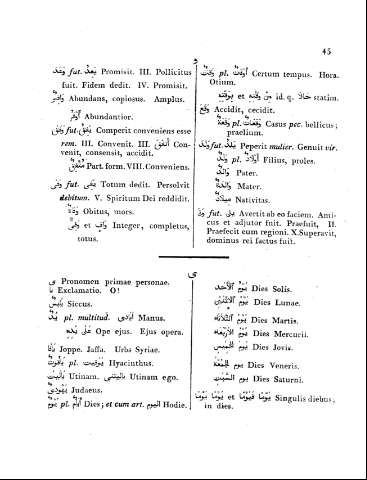 45
و
وَعَدَ fut. يَعِدُ Promisit. III. Pollicitus
fuit. Fidem dedit. IV. Promisit.
وَافِرٌ Abundans, copiosus. Amplus.
أَوْفَرُ Abundantior.
وَفِقَ fut. يَفِقُ Comperit conveniens esse
rem. III. Convenit. III أَتْفَقَ Con-
venit, consensit, accidit.
مُتَّفِقٌ Part. form. VIII. Conveniens.
وَفَى fut. يَفِي Totum dedit. Persolvit
debitum. V. Spiritum Dei reddidit.
وَفَاةٌ Obitus, mors.
وَفِيٌّ et وَافٍ Integer, completus,
totus.
وَقْتٌ pl. أَوْقَاتٌ Certum tempus. Hora.
Otium.
حَالًا id. q. مِنْ وَقْتِهِ et بِوَقْتِهِ statim.
وَقَعَ Accidit, cecidit.
وَقْعَةٌ pl. وَقَعَاتٌ Casus pec. bellicus;
praelium.
وَلَدَ fut. يَلِدُ Peperit mulier. Genuit vir.
وَلَدٌ pl. أَوْلَادٌ Filius, proles.
وَالِدٌ Pater.
وَالِدَةٌ Mater.
مِيلَادٌ Nativitas.
وَلِيَ fut. يَلِي Avertit ab eo faciem. Ami-
cus et adjutor fuit. Praefuit, II.
Praefecit cum regioni. X. Superavit,
dominus rei factus fuit.
ى
ي Pronomen primae personae.
يَا Exclamatio. O!
يَابِسٌ Siccus.
يَدٌ pl. multitud. أَيَادِي Manus.
عَلَى يَدِهِ Ope ejus. Ejus opera.
يَافَا Joppe. Jaffa. Urbs Syriae.
يَاقُوتٌ pl. يَوَاقِيتُ Hyacinthus.
يَا لَيْتَ Utinam. يَا لَيْتَنِي Utinam ego.
يَهُودِيٌّ Judaeus.
يَوْمٌ pl. أَيَّامٌ Dies; et cum art. اَلْيَوْمَ Hodie.
يَوْمُ ٱلْأَحَدِ Dies Solis.
يَوْمُ ٱلْاِثْنَيْنِ Dies Lunae.
يَوْمُ ٱلثَّلَاثَاءِ Dies Martis.
يَوْمُ ٱلْأَرْبِعَاءِ Dies Mercurii.
يَوْمُ ٱلْخَمِيسِ Dies Jovis.
يَوْمُ ٱلْجُمْعَةِ Dies Veneris.
يَوْمُ ٱلسَّبْتِ Dies Saturni.
يَوْمًا يَوْمًا et يَوْمًا فَيَوْمًا Singulis diebus,
in dies.